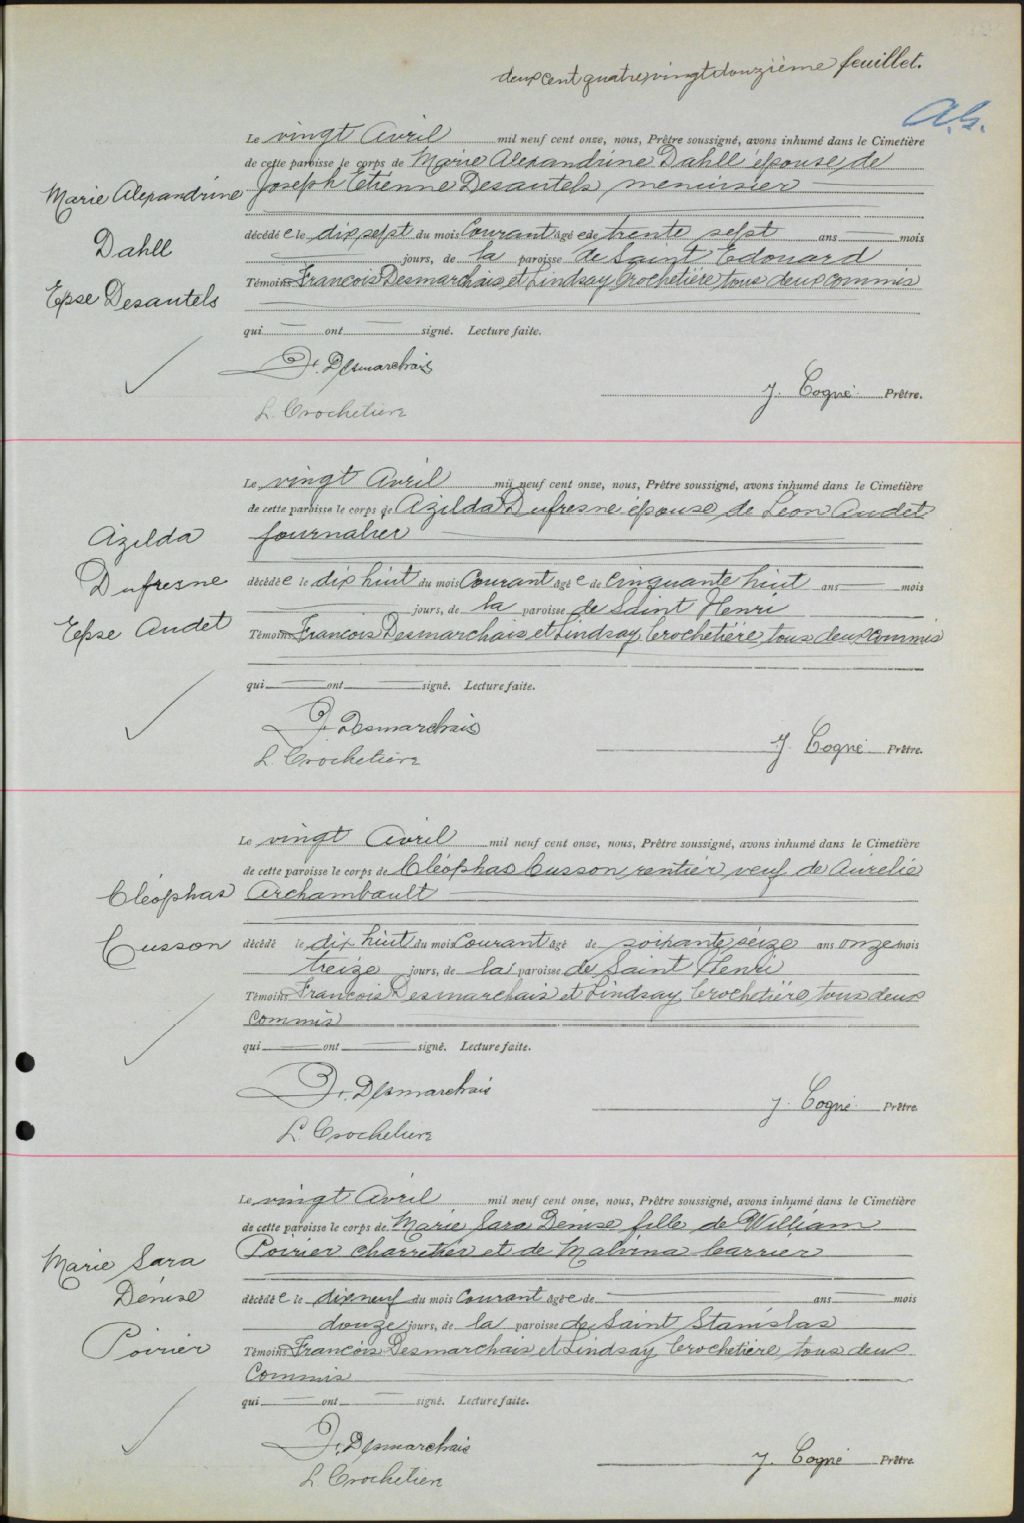 deux cent quatre vingt douzième feuillet.
A.G.
Le vingt Avril mil neuf cent onze, nous, Prêtre soussigné, avons inhumé dans le Cimetière
de cette paroisse le corps de Marie Alexandrine Dahll épouse de
Joseph Etienne Desautels menuisier
Marie Alexandrine
Dahll
Epse Desautels
décédé e le dix sept du mois Courant âgé e de trente sept ans mois
jours, de la paroisse de Saint Edouard
Témoins Francois Desmarchais et Lindsay Crochetière tous deux commis
qui ont signé. Lecture faite.
F. Desmarchais
J. Cogné Prêtre.
L. Crochetiere
Le vingt Avril mil neuf cent onze, nous, Prêtre soussigné, avons inhumé dans le Cimetière
de cette paroisse le corps de Azilda Dufresne épouse de Léon Audet
journalier
Azilda
Dufresne
Epse Audet
décédé e le dix huit du mois Courant âgé e de cinquante huit ans mois
jours, de la paroisse de Saint Henri
Témoins Francois Desmarchais et Lindsay Crochetière, tous deux commis
qui ont signé. Lecture faite.
F. Desmarchais
J. Cogné Prêtre.
L. Crochetiere
Le vingt Avril mil neuf cent onze, nous, Prêtre soussigné, avons inhumé dans le Cimetière
de cette paroisse le corps de Cléophas Cusson, rentier, veuf de Aurelie
Archambault
Cléophas
Cusson
décédé le dix huit du mois Courant âgé de soixante seize ans onze mois
treize jours, de la paroisse de Saint Henri
Témoins Francois Desmarchais et Lindsay Crochetière, tous deux
commis
qui ont signé. Lecture faite.
F. Desmarchais
J. Cogné Prêtre.
L. Crochetiere
Le vingt Avril mil neuf cent onze, nous, Prêtre soussigné, avons inhumé dans le Cimetière
de cette paroisse le corps de Marie Sara Dénise fille de William
Poirier charretier et de Malvina Carrier
Marie Sara
Dénise
Poirier
décédé e le dix neuf du mois Courant âgé e de ans mois
douze jours, de la paroisse de Saint Stanislas
Témoins Francois Desmarchais, et Lindsay Crochetière, tous deux
Commis
qui ont signé. Lecture faite.
F. Desmarchais
J. Cogné Prêtre.
L. Crochetiere